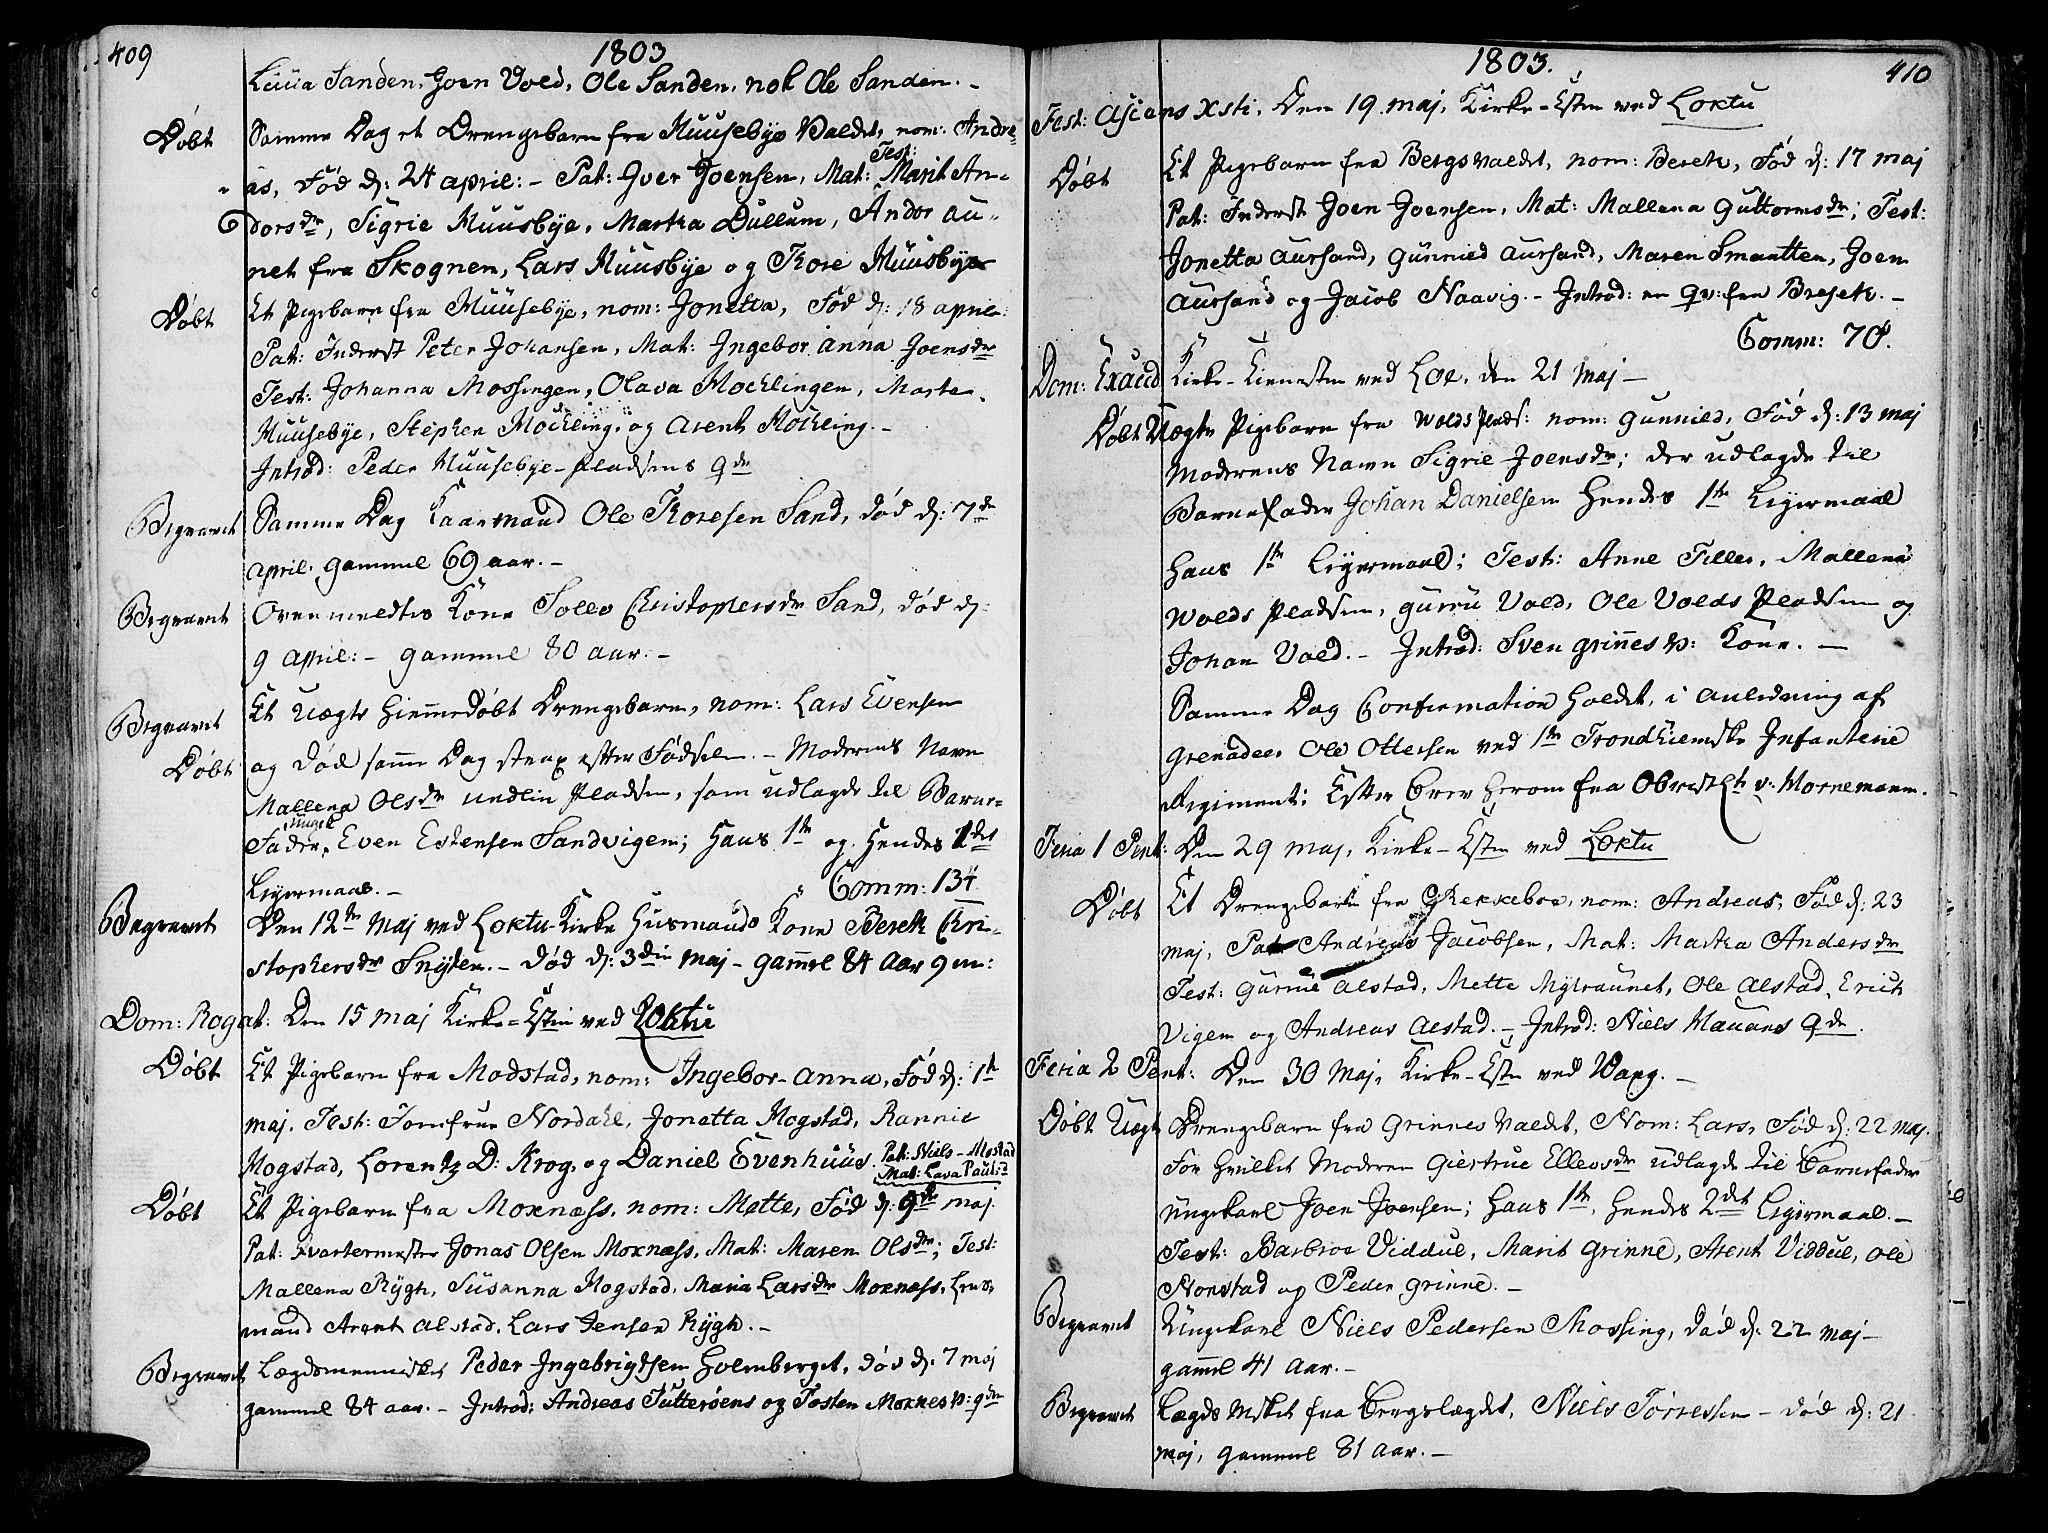 409
1803
Luua Sanden, Joen Vold, Ole Sanden, nok Ole Sanden. -
Døbt Samme Dag et Drengebarn fra Huusebye Valdet, nom: Andre-
as, Fød d: 24 april: - Pat: Iver Joensen, Mat: Marit An- Test:
dorsdr, Sigrie Huusbye, Martha Dullum, Andor au-
net fra Skognen, Lars Huusbye og Thore Huusbye
Døbt Et Pigebarn fra Huusebye, nom: Jonetta, Fød d: 18 april:
Pat: Inderst Peter Johansen, Mat: Ingebor Anna Joensdr
Test: Johanna Mossingen, Olava Hocklingen, Marte
Huusebye, Stephen Hockling, og Arent Hockling. -
Introd: Peder Huusebye-Pladsens qde
Begravet Samme Dag Kaarmand Ole Thoresen Sand, død d: 7de
april: gammel 69 aar. -
Begravet Ovenmeldtes Kone Sollv Christophersdr Sand, død d:
9 april: - gammel 80 aar. -
Begravet Et Uægte Hiemmedøbt Drengebarn, nom: Lars Evensen
Døbt og død samme Dag strax efter Fødselen. - Moderens Navn
Mallena Olsdr undlin Pladsen, som udlagde til Barne-
Fader, ungk Even Estensen Sandvigen; Hans 1te og Hendes 1det
Leyermaal. - Comm: 134
Begravet Den 12te Maj ved Loktu-Kirke Husmands Kone Bereth Chri-
stophersdr Snyten. - Død d: 3die maj - gaml 84 Aar 9 m:
Dom: Rogat: Den 15 maj Kirke-Estn ved Loktu
Døbt Et Pigebarn fra Modstad, nom: Ingebor-Anna, Fød d: 1te
maj. Test: Jomfrue Nordahl, Jonetta Hogstad, Rannie
Hogstad, Lorentz D: Krog, og Daniel Evenhuus. Pat: Niels - Mostad
Mat: Lava Paul:d
Døbt Et Pigebarn fra Moxnæss, nom: Mette, Fød d: 9de maj.
Pat: Kvartermester Jonas Olsen Moxnæss, Mat: Maren Olsdr; Test:
Mallena Rygh, Susanna Hogstad, Maria Larsdr Moxnæss, Lens-
mand Arent alstad, Lars Jensen Rygh. -
Begravet Lægdsmennisket Peder Ingebrigtsen Holmberget, død d: 7 maj
gammel 84 aar. - Introd: Andreas Tutterøens og Tosten Moxnes p: qder
1803.
410
Fest: Ascens Xsti, Den 19 maj, Kirke-Estn ved Loktu
Døbt Et Pigebarn fra Bergsvaldet, nom: Bereth, Fød d: 17 maj
Pat: Inderst Joen Joensen, Mat: Mallena Guttormsdr; Test:
Jonetta Aursand, Gunnied Aursand, Maren Smaatten, Joen
Aursand og Jacob Naavig. - Introd: en qv: fra Breseth. -
Comm: 70.
Dom: Exaud Kirke-Tienesten ved Loe, den 21 Maj -
Døbt Uægte Pigebarn fra Wolds Plads: nom: Gunnied, Fød d: 13 maj
Moderens Navn Sigrie Joensdr; der udlagde til
Barnefader Johan Danielsen Hendes 1te Leyermaal
Hans 1te Leyermaal; Test: Anne Tiller, Mallena
Wolds Pladsen, Gurru Vold, Ole Volds Pladsen og
Johan Vold. - Introd: Sven Grinnes p: Kone. -
Samme Dag Confirmation Holdet, i Anledning af
Grenadeer Ole Ottersen ved 1te Trondhiemske Infanterie
Regiment; Efter Brev Herom fra Obristlt v: Hornemann.
Feria 1 Pent: Den 29 maj, Kirke-Estn ved Loktu
Døbt Et Drengebarn fra Rekkeboe, nom: Andreas, Fød d: 23
maj, Pat Andreas Jacobsen, Mat: Martha Andersdr
Test: Gurrue Alstad, Mette Myhraunet, Ole Alstad, Erich
Vigen og Andreas Alstad. - Introd: Niels Hauans qde.
Feria 2 Pent: Den 30 Maj, Kirke-Estn ved Wang. -
Døbt Uægte Drengebarn fra Grinnes Valdet, Nom: Lars, Fød d: 22 maj.
For hvilket Moderen Giertrue Ellevsdr udlagde til Barnefader
ungekarl Joen Joensen; Hans 1te, Hendes 2det Leyermaal. -
Test: Barbroe Viddul, Marit Grinne, Arent Viddul, Ole
Storstad og Peder Grinne. -
Begravet Ungekarl Niels Pedersen Mossing, død d: 22 maj -
gaml 41 Aar. -
Begravet Lægds Msket fra Bergslægdet, Niels Torressen - død d: 21
maj, gammel 81 Aar. -